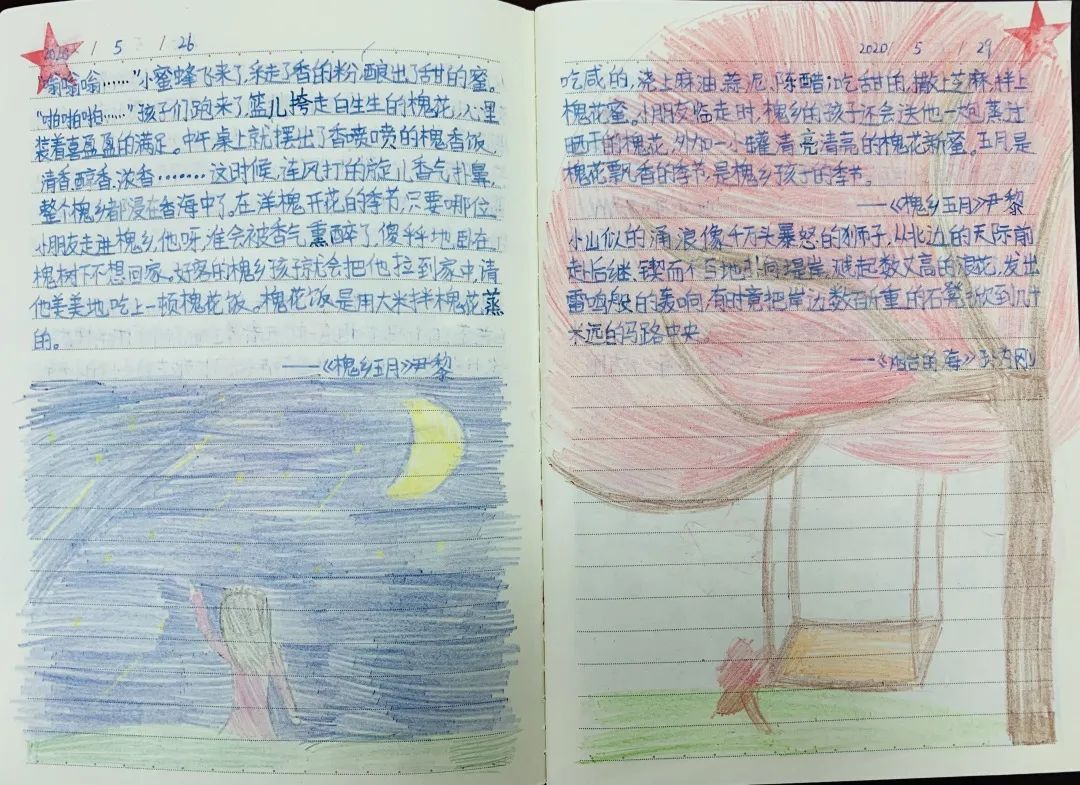 2020 / 5 / 26
"嗡嗡嗡……"小蜜蜂飞来了,采走了香的粉,酿出了甜的蜜。
"啪啪啪……"孩子们跑来了,篮儿挎走白生生的槐花,心里
装着喜盈盈的满足。中午,桌上就摆出了香喷喷的槐香饭,
清香、醇香、浓香………这时候,连风打的旋儿香气扑鼻,
整个槐乡都浸在香海中了。在洋槐开花的季节,只要哪位
小朋友走进槐乡,他呀,准会被香气熏醉了,傻乎乎地卧在
槐树下不想回家。好客的槐乡孩子就会把他拉到家中,请
他美美地吃上一顿槐花饭。槐花饭是用大米拌槐花蒸
的。
——《槐乡五月》尹黎
2020 / 5 / 29
吃咸的,浇上麻油、蒜泥、陈醋;吃甜的,撒上芝麻,拌上
槐花蜜。小朋友临走时,槐乡的孩子还会送他一袋蒸过
晒干的槐花,外加一小罐清亮清亮的槐花新蜜。五月是
槐花飘香的季节,是槐乡孩子的季节。
——《槐乡五月》尹黎
小山似的涌浪像千万头暴怒的狮子,从北边的天际前
赴后继、锲而不舍地扑向堤岸,溅起数丈高的浪花,发出
雷鸣般的轰响,有时竟把岸边数百斤重的石凳掀到几十
米远的马路中央。
——《烟台的海》